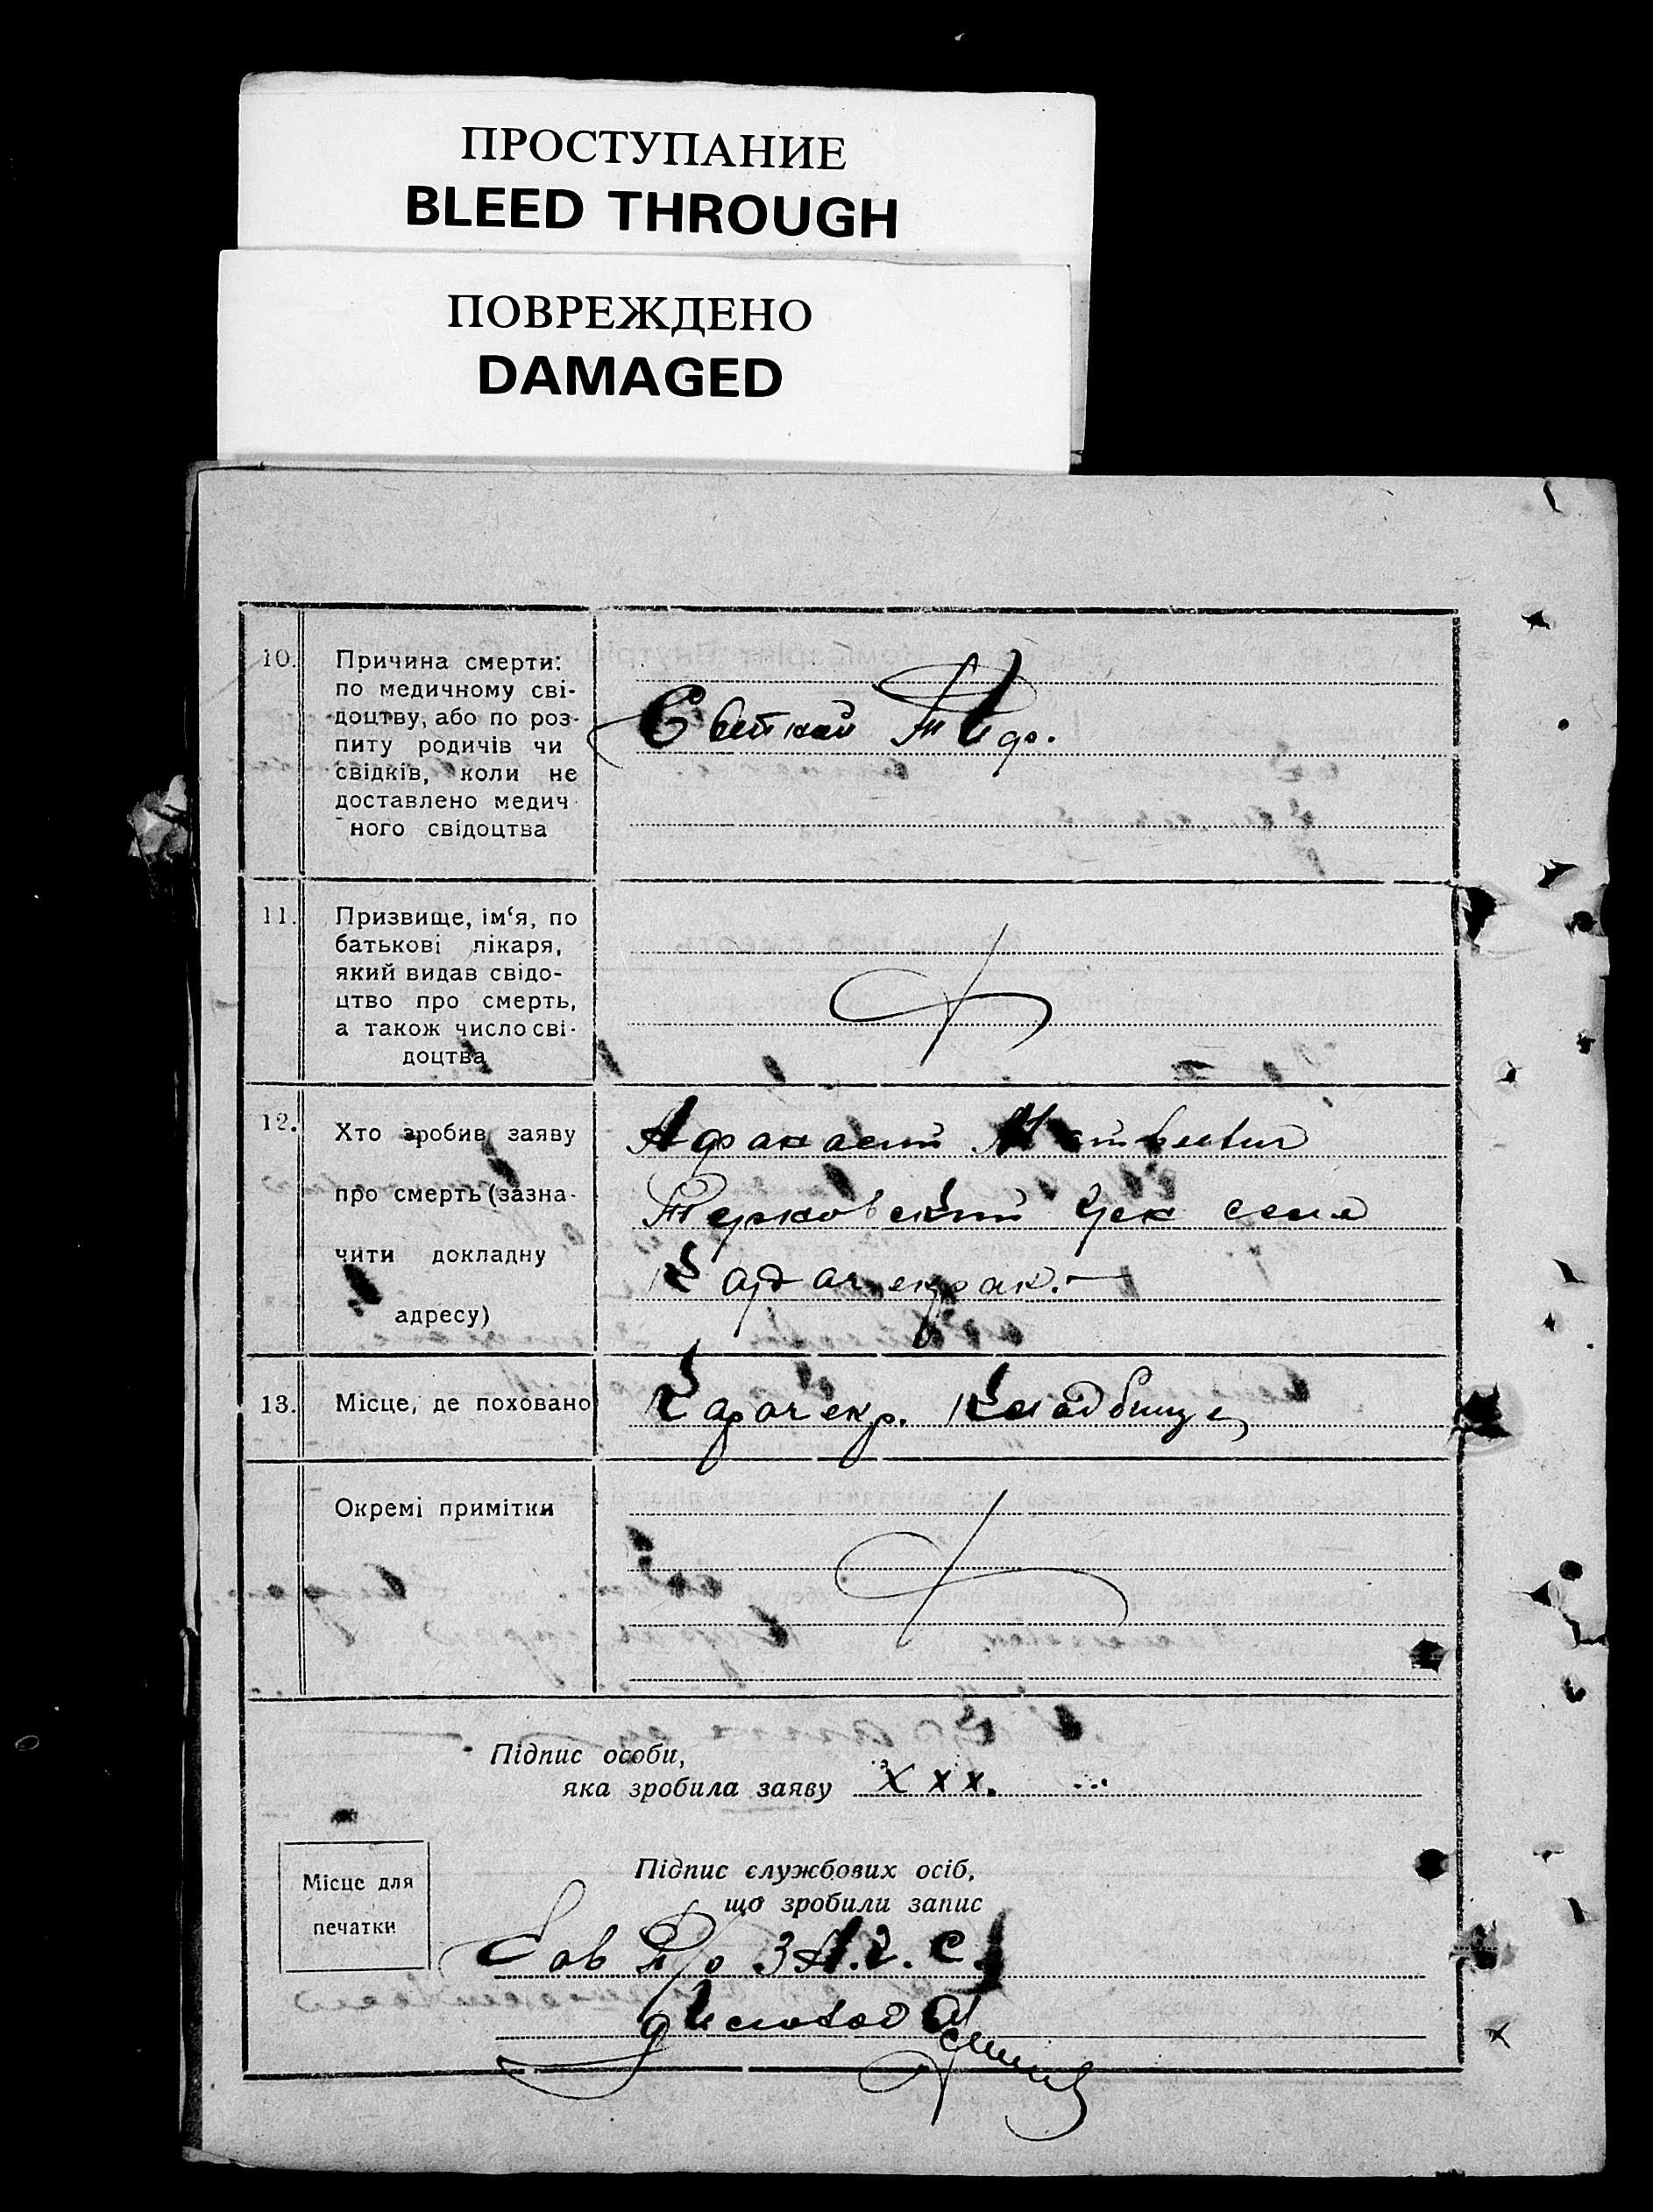 ПРОСТУПАНИЕ
BLEED THROUGH
ПОВРЕЖДЕНО
DAMAGED
10.
Причина смерти:
по медичному сві-
доцтву, або по роз-
питу родичів чи
свідків, коли не
доставлено медич
ного свідоцтва
Тиф.
11.
Призвище, ім‘я, по
батькові лікаря,
який видав свідо-
цтво про смерть,
а також число сві-
доцтва
12.
Хто зробив заяву
про смерть (зазна-
чити докладну
адресу)
Афанасий
села
13.
Місце, де поховано
Карачекр. Кладбище
Окремі примітки
Підпис особи,
яка зробила заяву ххх.
Місце для
печатки
Підпис службових осіб,
що зробили запис
З.А.Г.С.